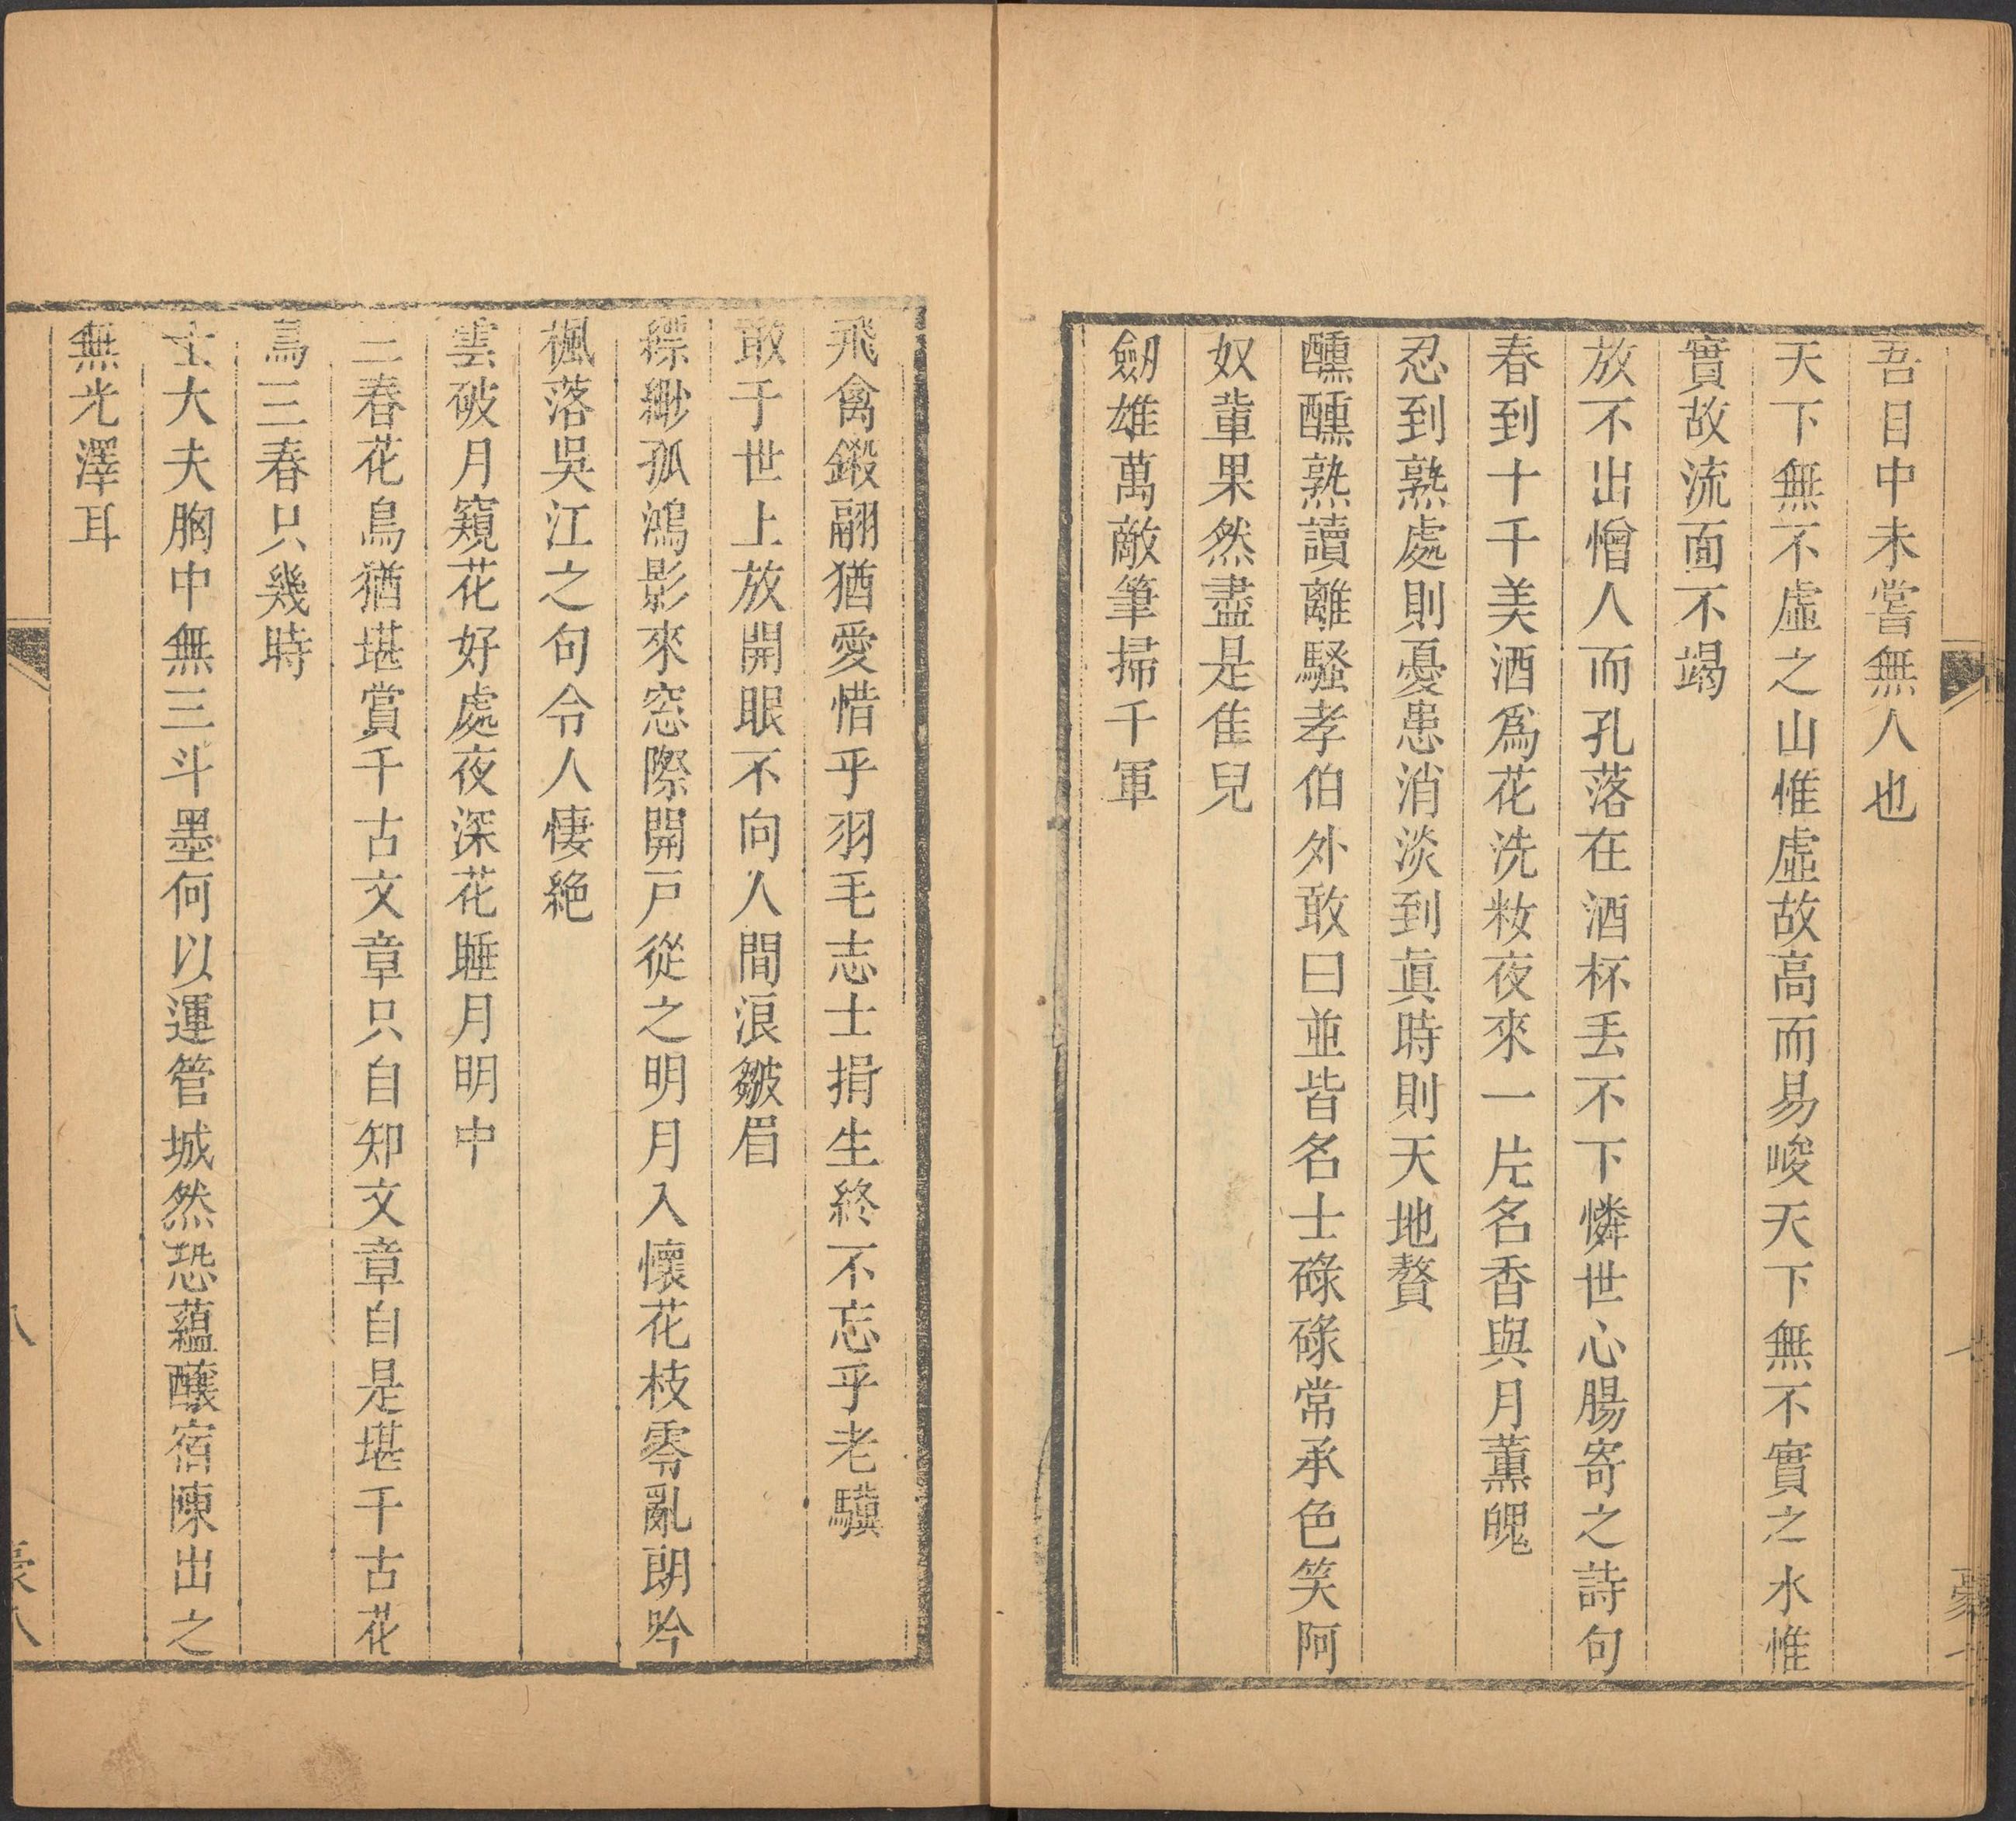 吾目中未嘗無人也
天下無不虛之山惟虛故高而易峻天下無不實之水惟
實故流面不竭
放不出憎人而孔落在酒杯丢不下憐世心腸寄之詩句
春到十千美酒爲花洗粧夜來一片名香與月薰魄
忍到熟處則憂患消淡到眞時則天地贅
醺醺熟讀離騷孝伯外敢曰並皆名士碌碌常承色笑阿
奴輩果然盡是隹兒
劒雄萬敵筆掃千軍
飛禽鎩翮猶愛惜乎羽毛志士捐生終不忘乎老驥
敢于世上放開眼不向人間浪皺眉
縹緲孤鴻影來窓際開戸從之明月入懷花枝零亂朗吟
楓落吳江之句令人悽絶
雲破月窺花好處夜深花睡月明中
三春花鳥猶堪賞千古文章只自知文章自是堪千古花
鳥三春只幾時
士大夫胸中無三斗墨何以運管城然恐蘊釀宿陳出之
無光澤耳
八
豪八